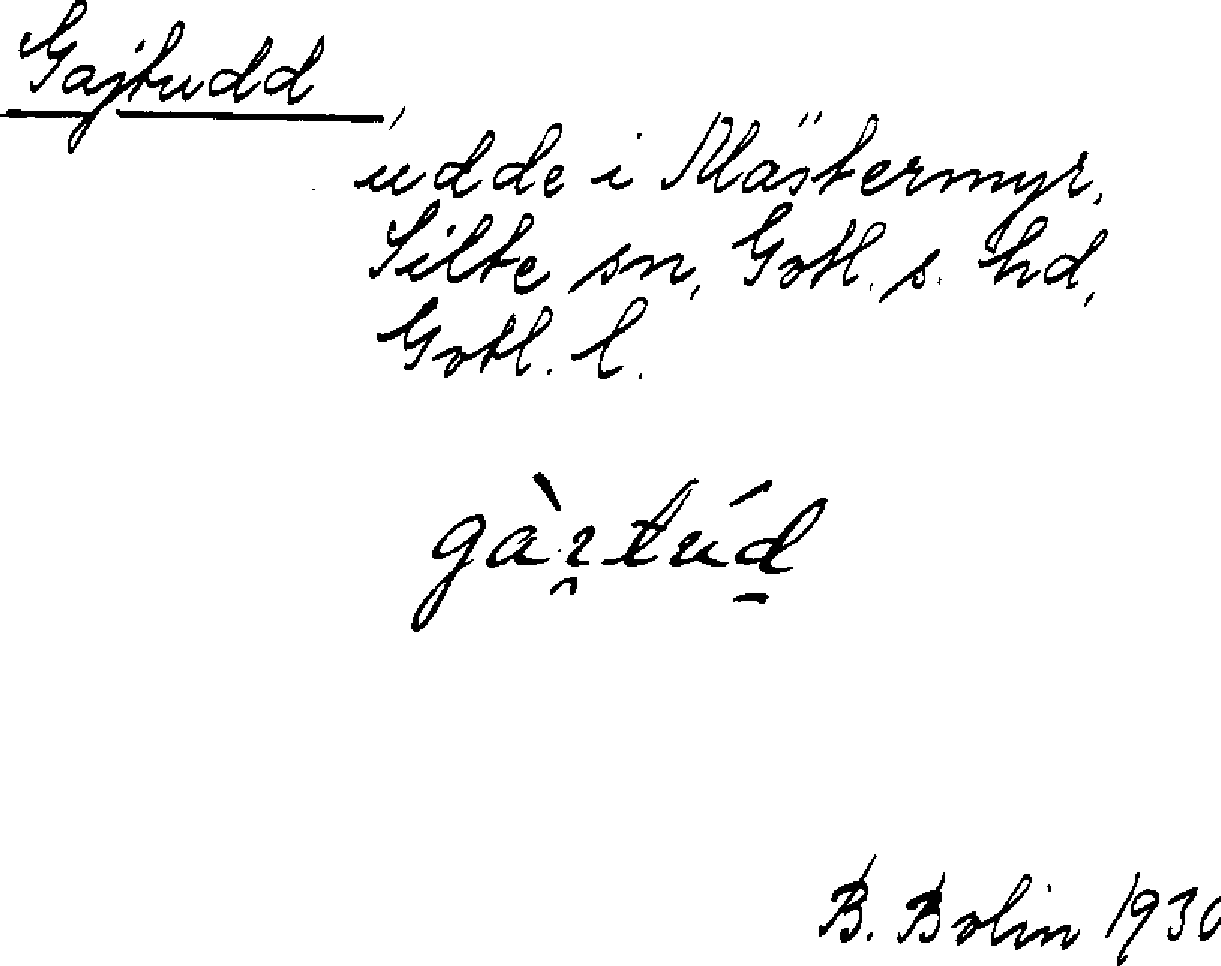 Gajtudd,
udde i Mästermyr,
Silte sn, Gotl. s. hd,
Gotl. l.
B. Bolin 1930